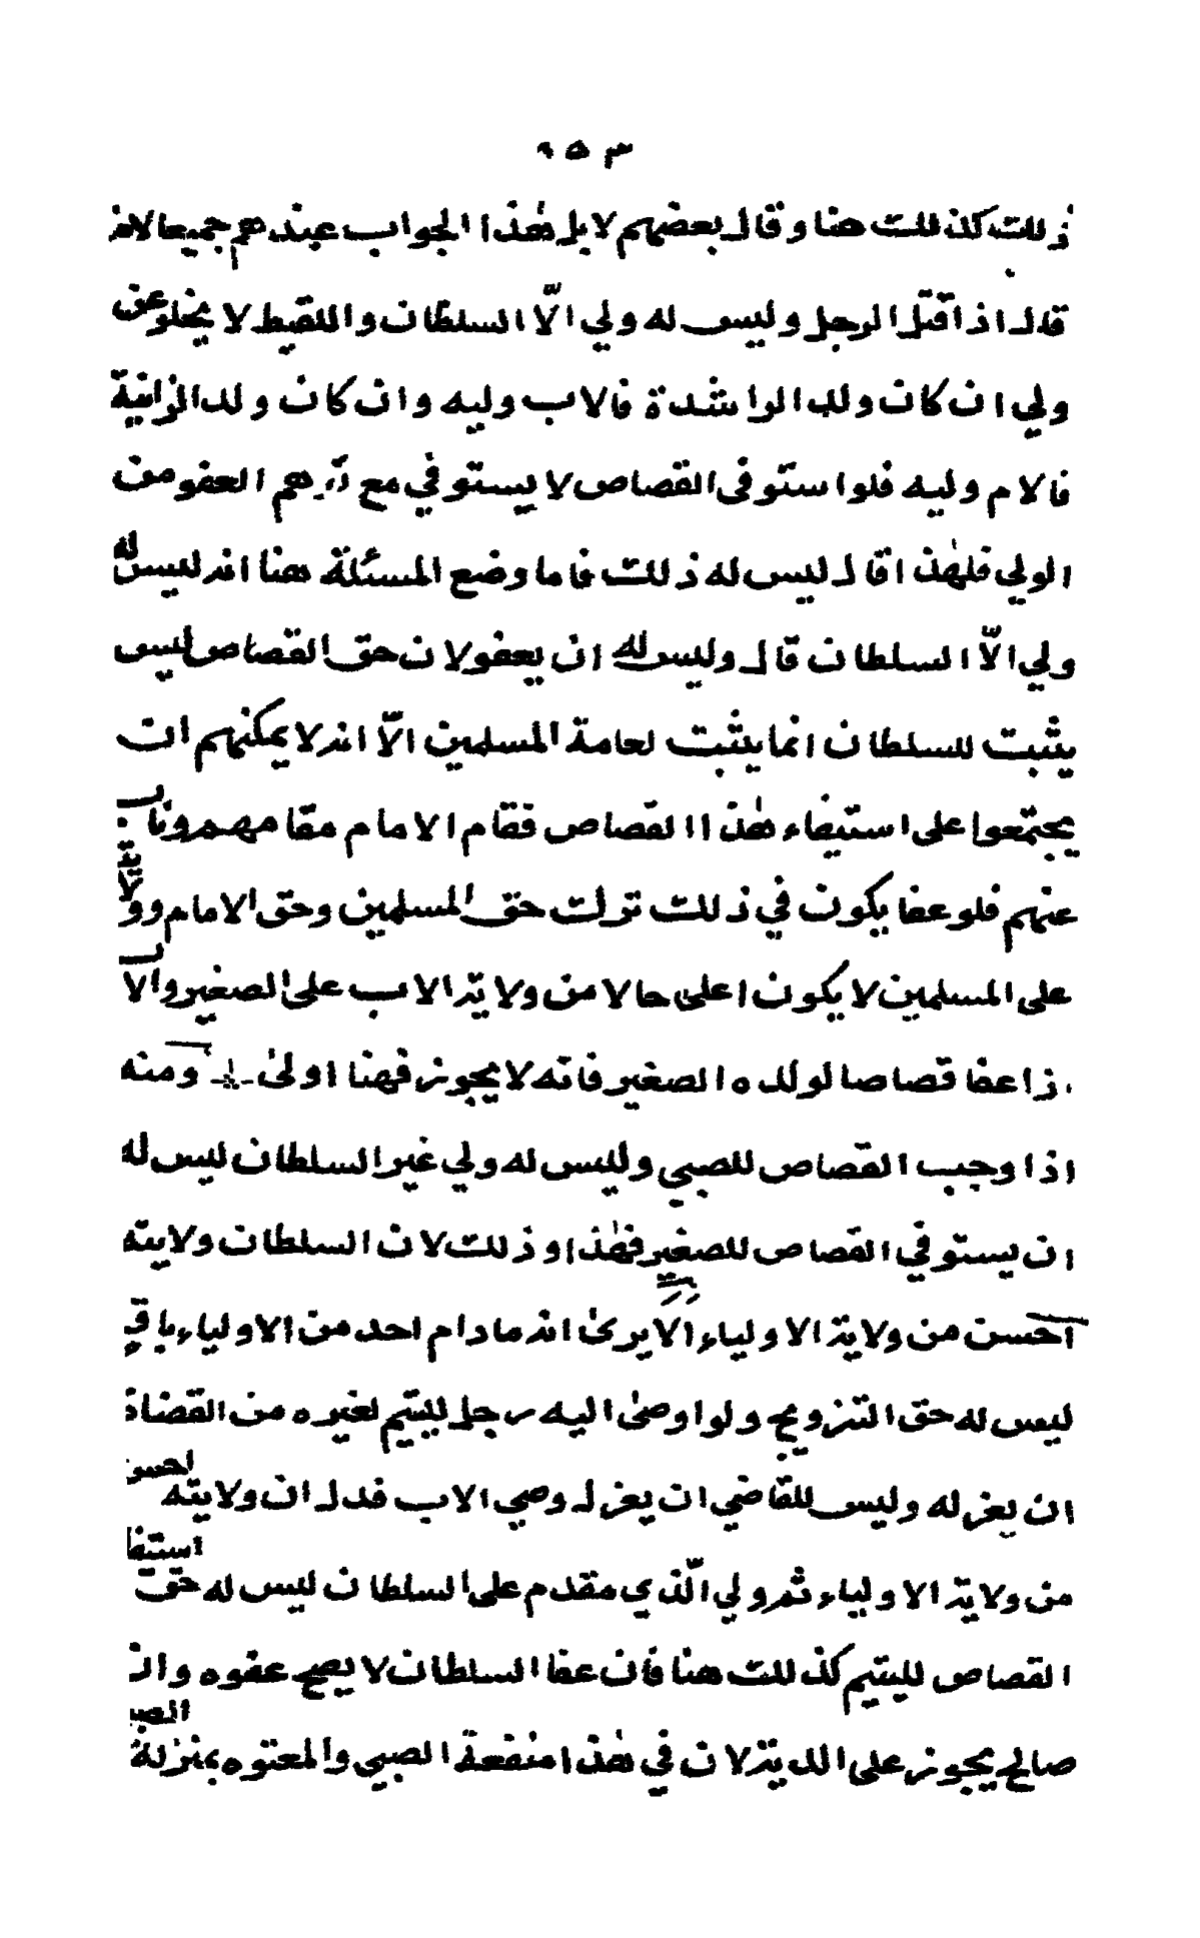 ٩٥٣
ذلك كذلك هنا وقال بعضهم لا بل هٰذا الجواب عندهم جميعا لانه
قال اذا قتل الرجل وليس له ولي الّا السلطان واللقيط لا يخلو عن
ولي ان كان ولد الراشدة فالاب وليه وان كان ولد الزانية
فالام وليه فلو استوفى القصاص لا يستوفي مع توهم العفو من
الولي فلهٰذا قال ليس له ذلك فاما وضع المسئلة هنا انه ليس له
ولي الّا السلطان قال وليس له ان يعفو لان حق القصاص ليس
يثبت للسلطان انما يثبت لعامة المسلمين الّا انه لا يمكنهم ان
يجتمعوا على استيفاء هٰذا القصاص فقام الامام مقامهم وناب
عنهم فلو عفا يكون في ذلك ترك حق المسلمين وحق الامام وولاية
على المسلمين لا يكون اعلى حالا من ولاية الاب على الصغير والاب
اذا عفا قصاصا لولده الصغير فانه لا يجوز فهنا اولىٰ ومنه
اذا وجب القصاص للصبي وليس له ولي غير السلطان ليس له
ان يستوفي القصاص للصغير فهٰذا وذلك لان السلطان ولايته
احسن من ولاية الاولياء الا يرىٰ انه ما دام احد من الاولياء باق
ليس له حق التزويج ولو اوصىٰ اليه رجل لليتيم لغيره من القضاة
ان يعزله وليس للقاضي ان يعزل وصي الاب فدل ان ولايته احسن
من ولاية الاولياء ثم ولي الّذي مقدم على السلطان ليس له حق استيفا
القصاص لليتيم كذلك هنا فان عفا السلطان لا يصح عفوه وان
صالح يجوز على الدية لان في هٰذا منفعة الصبي والمعتوه بمنزلة الصبي